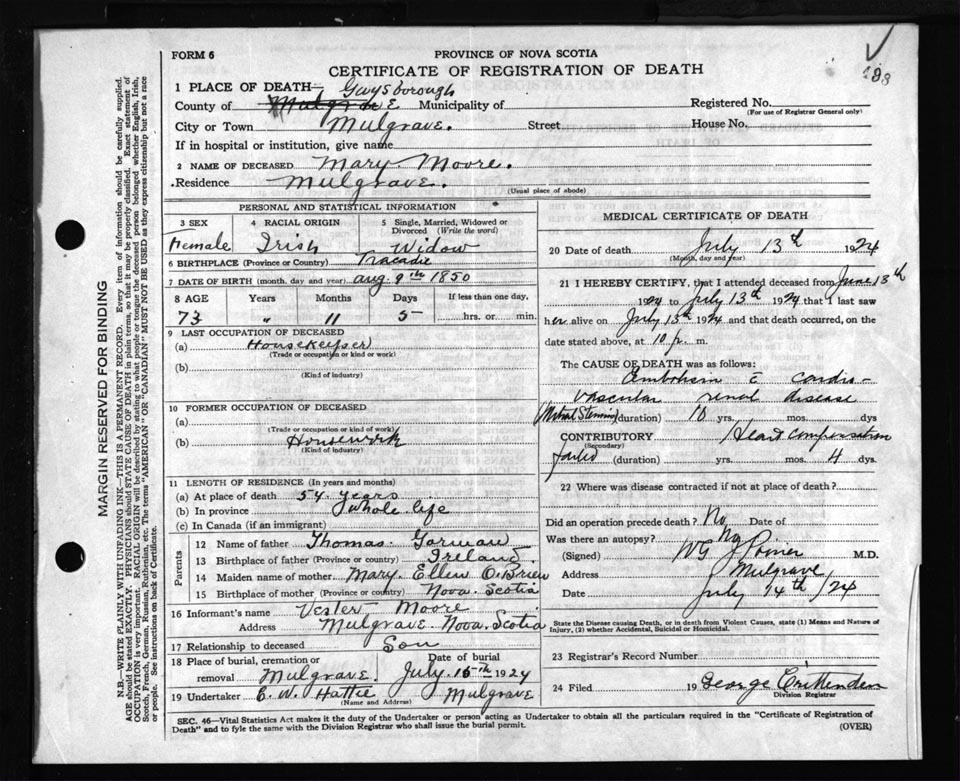 FORM 6
PROVINCE OF NOVA SCOTIA
CERTIFICATE OF REGISTRATION OF DEATH
1 PLACE OF DEATH— Guysborough
County of Mulgrave Municipality of
Registered No.
(For use of Registrar General only)
City or Town Mulgrave. Street House No.
If in hospital or institution, give name
2 NAME OF DECEASED Mary Moore.
Residence Mulgrave.
(Usual place of abode)
PERSONAL AND STATISTICAL INFORMATION
3 SEX
Female
4 RACIAL ORIGIN
Irish
5 Single, Married, Widowed or Divorced (Write the word)
Widow
6 BIRTHPLACE (Province or Country) Tracadie
7 DATE OF BIRTH (month, day and year) Aug. 9th 1850
8 AGE Years Months Days If less than one day,
73 " 11 5 hrs. or min.
9 LAST OCCUPATION OF DECEASED
(a) Housekeeper
(Trade or occupation or kind or work)
(b)
(Kind of industry)
10 FORMER OCCUPATION OF DECEASED
(a)
(Trade or occupation or kind of work)
(b) Housework
(Kind of industry)
11 LENGTH OF RESIDENCE (In years and months)
(a) At place of death 54 years
(b) In province Whole life
(c) In Canada (if an immigrant)
Parents
12 Name of father Thomas Gorman
13 Birthplace of father (Province or country) Ireland.
14 Maiden name of mother Mary Ellen O'Brien
15 Birthplace of mother (Province or country) Nova Scotia
16 Informant's name Vester Moore
Address Mulgrave Nova Scotia
17 Relationship to deceased Son
18 Place of burial, cremation or removal Mulgrave.
Date of burial July 15th 1924
19 Undertaker E. W. Hattie Mulgrave
(Name and Address)
MEDICAL CERTIFICATE OF DEATH
20 Date of death July 13th 1924
(Month, day and year)
21 I HEREBY CERTIFY, that I attended deceased from June 13th
1924 to July 13th 1924 that I last saw
her alive on July 13th 1924 and that death occurred, on the
date stated above, at 10 p. m.
The CAUSE OF DEATH was as follows:
Embolism c̄ cardio-
vascular renal disease
(Mitral Stenosis) (duration) 10 yrs. mos. dys
CONTRIBUTORY Heart compensation
(Secondary)
failed (duration) yrs. mos. 4 dys.
22 Where was disease contracted if not at place of death?
Did an operation precede death? No Date of
Was there an autopsy? No
(Signed) M.D.
Address Mulgrave
Date July 14th/24
State the Disease causing Death, or in death from Violent Causes, state (1) Means and Nature of
Injury, (2) whether Accidental, Suicidal or Homicidal.
23 Registrar's Record Number
24 Filed 19 George Crittenden
Division Registrar
SEC. 46—Vital Statistics Act makes it the duty of the Undertaker or person acting as Undertaker to obtain all the particulars required in the "Certificate of Registration of
Death" and to file the same with the Division Registrar who shall issue the burial permit.
(OVER)
MARGIN RESERVED FOR BINDING
N.B.—WRITE PLAINLY WITH UNFADING INK—THIS IS A PERMANENT RECORD. Every item of information should be carefully supplied.
AGE should be stated EXACTLY. PHYSICIANS should STATE CAUSE OF DEATH in plain terms, so that it may be properly classified. Exact statement of
OCCUPATION is very important. RACIAL ORIGIN will be described by stating to what people or tongue the deceased person belonged whether English, Irish,
Scotch, French, German, Russian, Ruthenian, etc. The terms "AMERICAN" or "CANADIAN" MUST NOT BE USED as they express citizenship but not a race
or people. See instructions on back of Certificate.